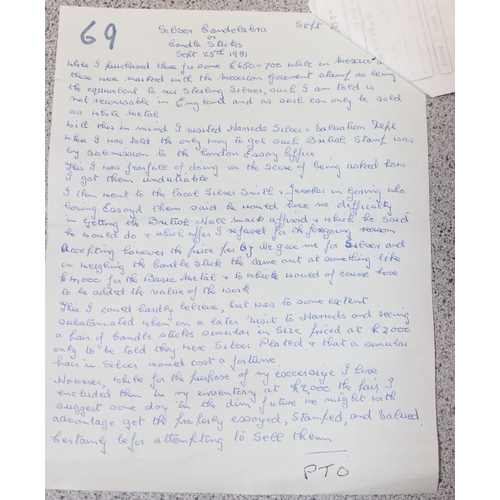 69
Silver Candelabra
Sept
or
Candle Sticks
Sept 25th 1981
While I purchased these for some £650-700 while in Mexico
these were marked with the Mexican Goverment Stamp as being
the equivalent to our Sterling Silver, such I am told is
not recognisable in England and as such can only be sold
as White Metal
With this in mind I visited Harrods Silver + Valuation Dept
where I was told the only way to get such British Stamp was
by submission to the London Essay Office
This I was fearfull of doing on the Score of being asked how
I got them
I then went to the local Silver Smith + Jeweler in Goring who
having Essayd them said he would have no difficulty
in getting the British Hall mark affixed + which he said
he would do + which offer I refused for the forgoing reason
Accepting however the price per he gave me for Silver and
on weighing the Candle Stick the same out at something like
for the Basic Metal + to which would of course have
to be added the value of the work
This I could hardly believe, but was to some extent
substantiated when on a later visit to Harrods and seeing
a pair of Candle sticks simular in Size priced at £2000
only to be told they were Silver Plated + that a simular
pair in Silver would cost a fortune
However, while for the purpose of my excersize I have
included them in my inventory at the pair, I
suggest some day in the dim future we might with
advantage get the properly essayed, Stamped, and Valued.
Certainly before attempting to Sell them
PTO